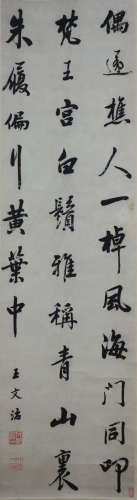 偶逐樵人一棹風海門同叩
梵王宮白鬚雅稱青山裏
朱履偏行黃葉中
王文治